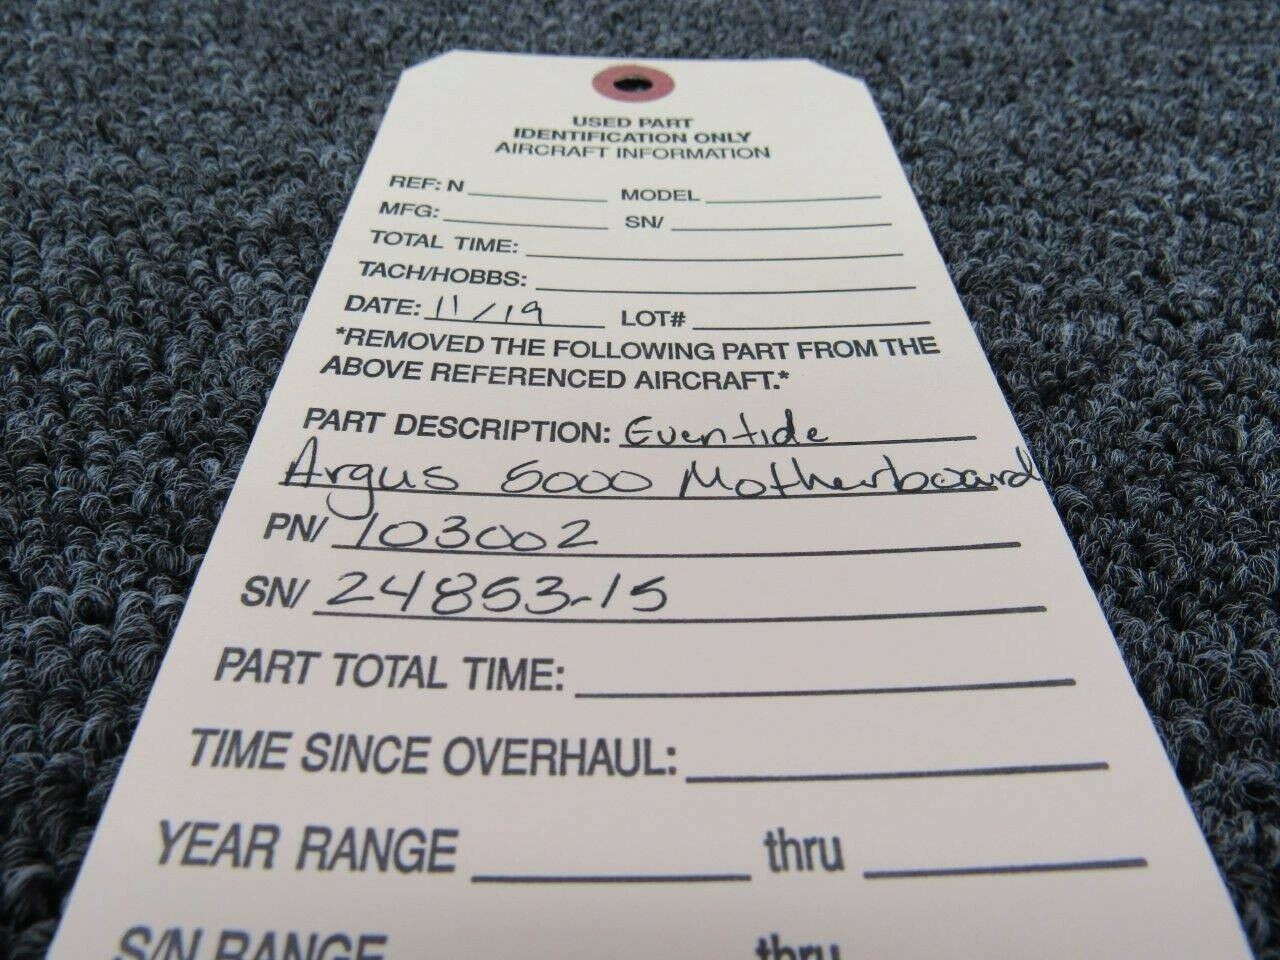 USED PART
IDENTIFICATION ONLY
AIRCRAFT INFORMATION
REF: N MODEL
MFG: SN/
TOTAL TIME:
TACH/HOBBS:
DATE: 11/19 LOT#
*REMOVED THE FOLLOWING PART FROM THE
ABOVE REFERENCED AIRCRAFT.*
PART DESCRIPTION: Eventide
Argus 5000 Motherboard
PN/ 103002
SN/ 24853-15
PART TOTAL TIME:
TIME SINCE OVERHAUL:
YEAR RANGE thru
S/N RANGE thru